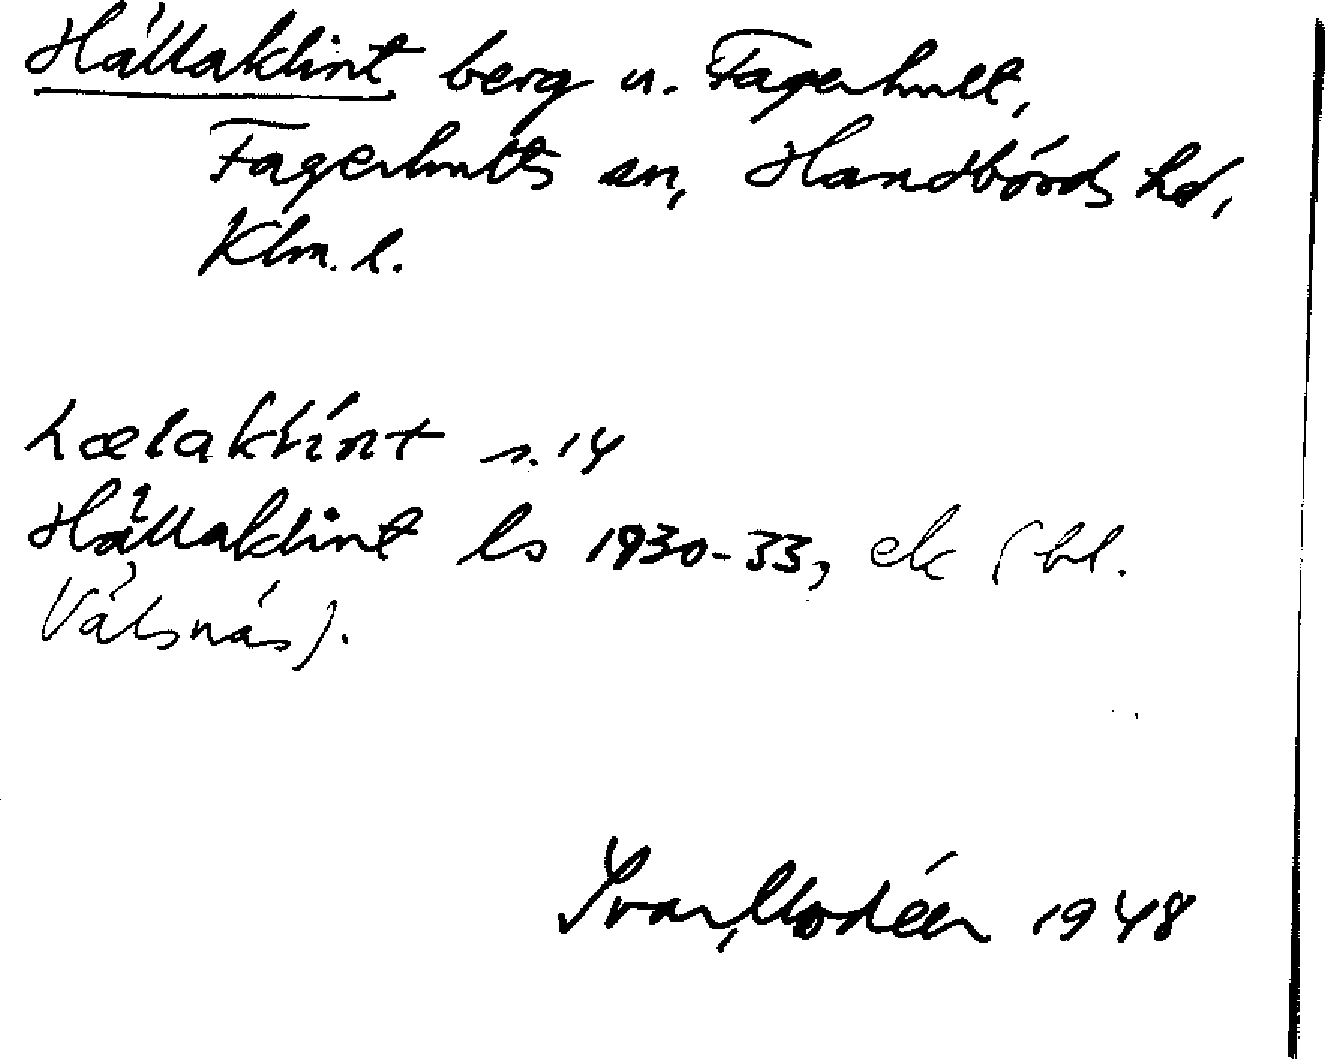 Hällaklint berg u. Fagerhult,
Fagerhults sn, Handbörds hd,
Klm. l.
hælaklint s. 14
Hällaklint ls 1930-33, ek (bl.
Välsnäs).
Ivar Modéer 1948